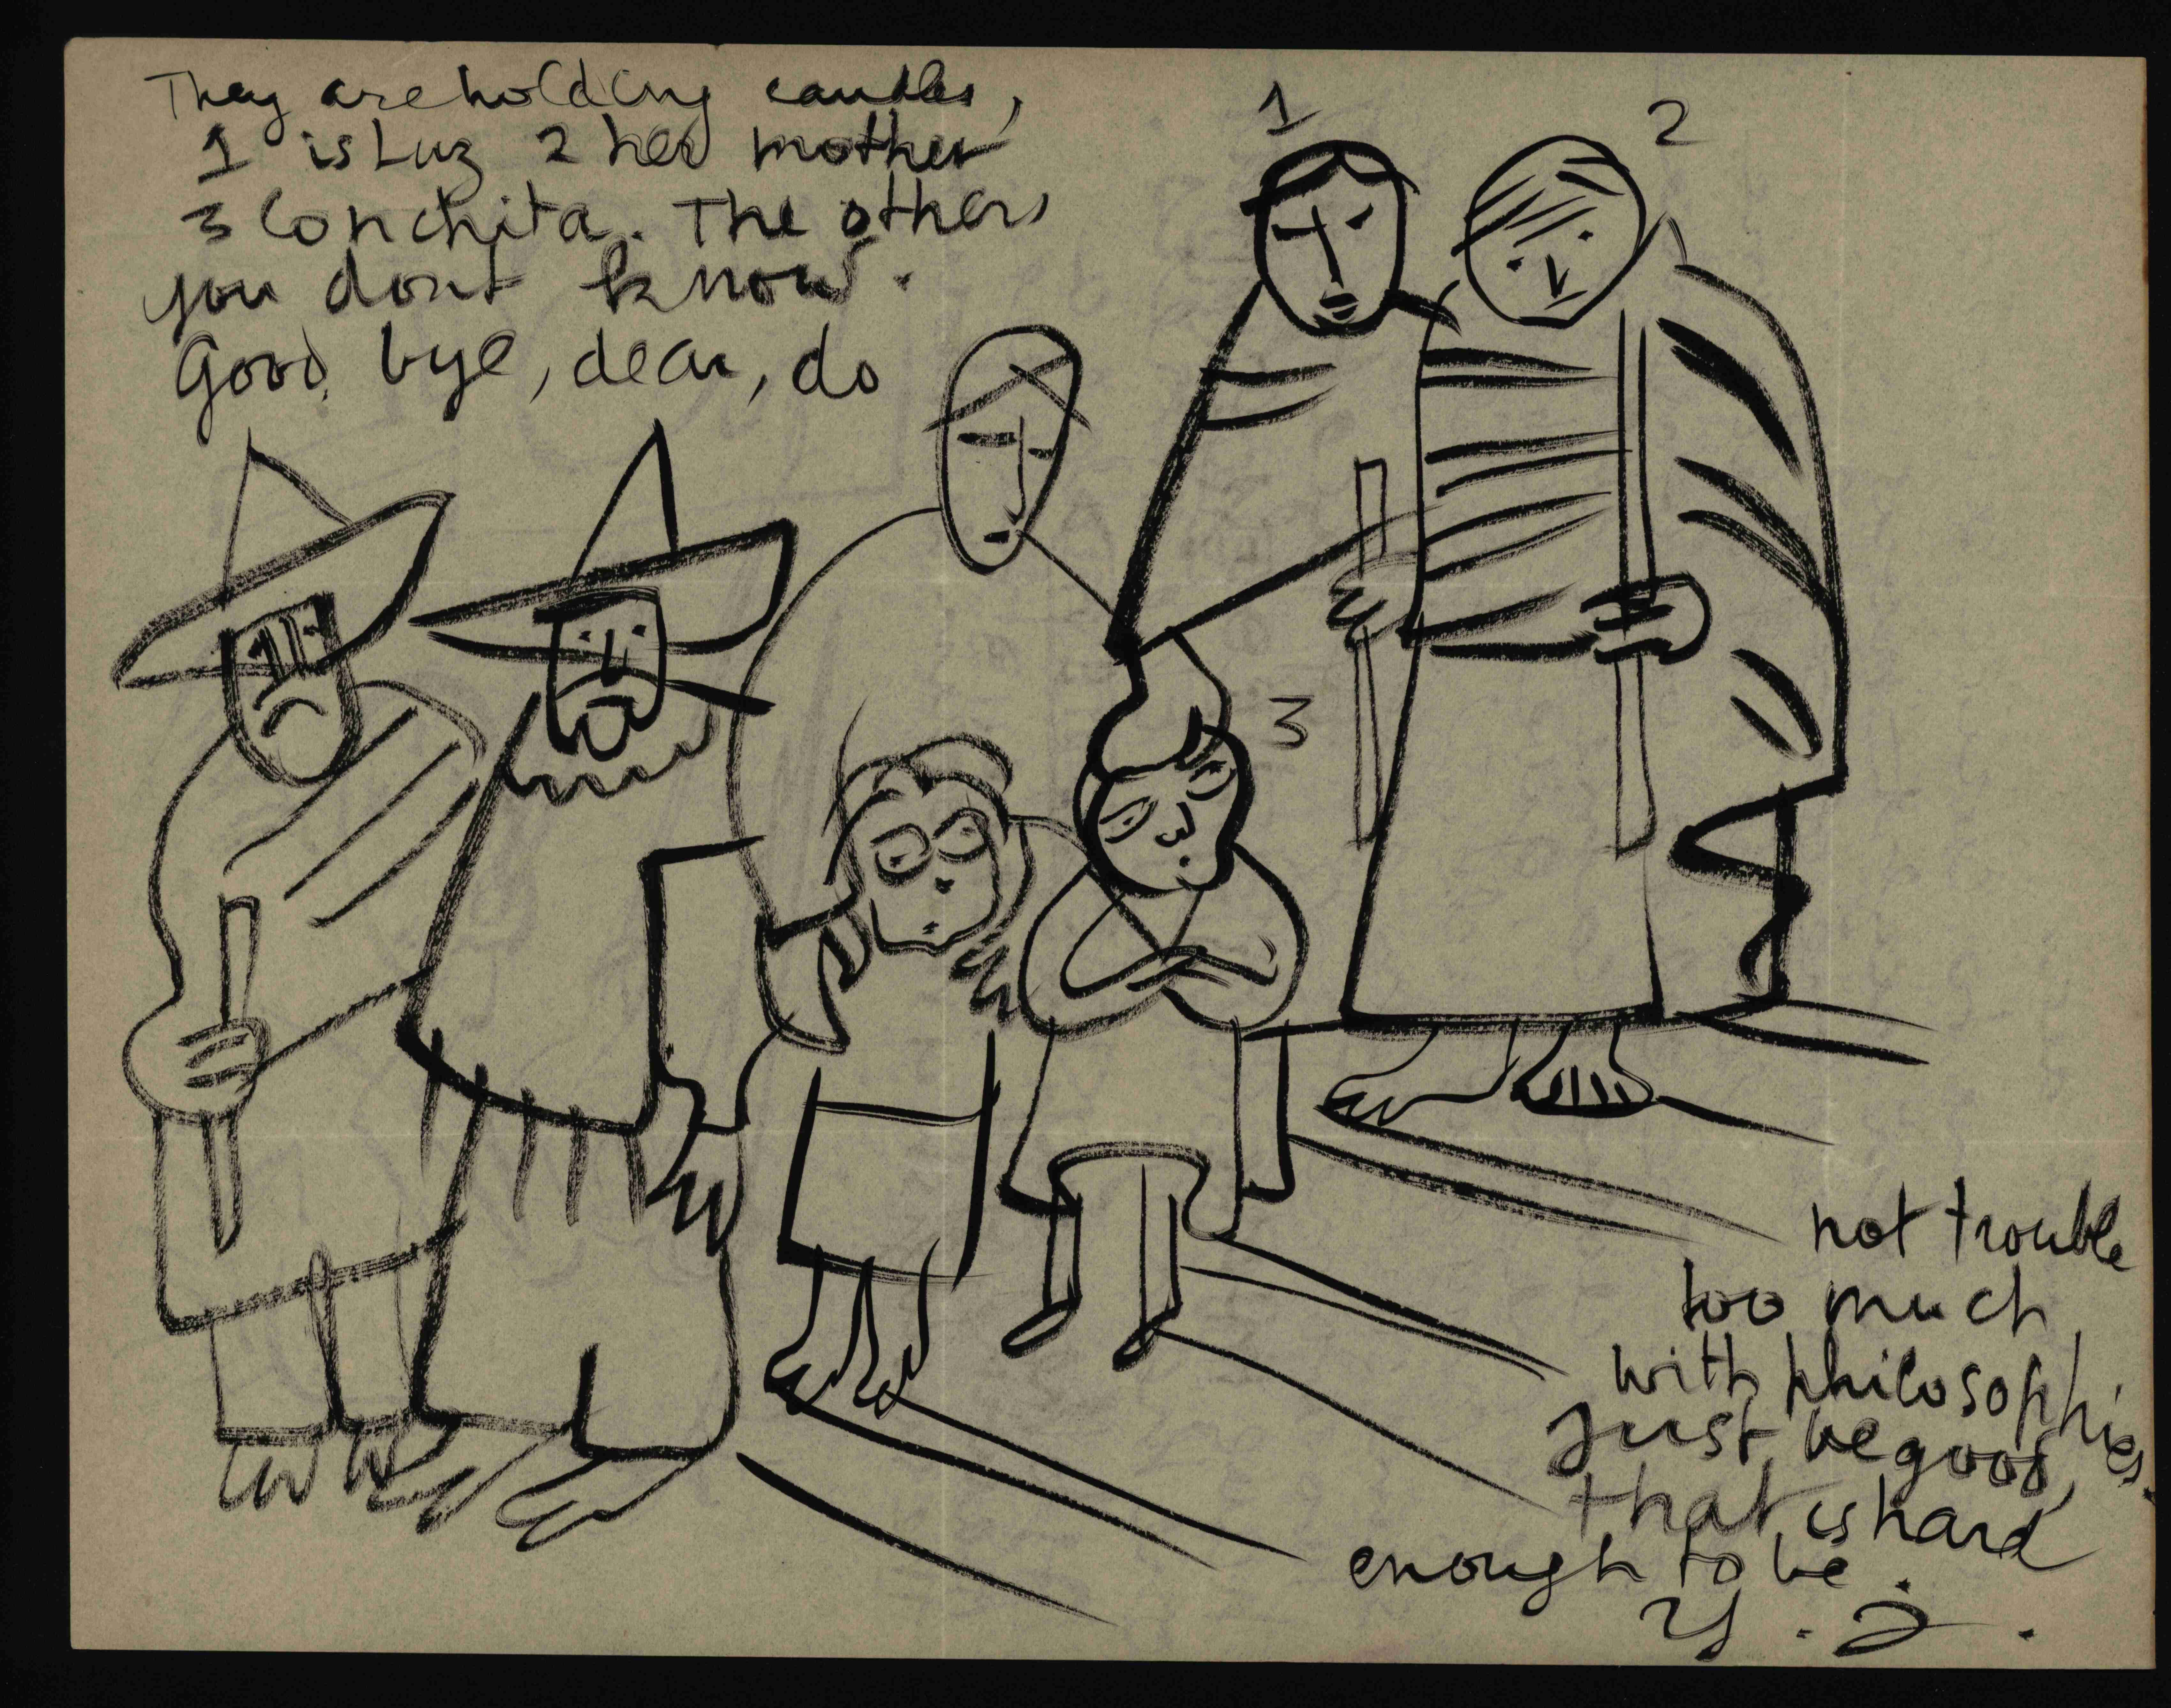 They are holding candles,
1 is Luz 2 her mother
3 Conchita. The others
you dont know.
Good bye, dear, do
1
2
3
not trouble
too much
with philosophies.
Just be good,
that is hard
enough to be.